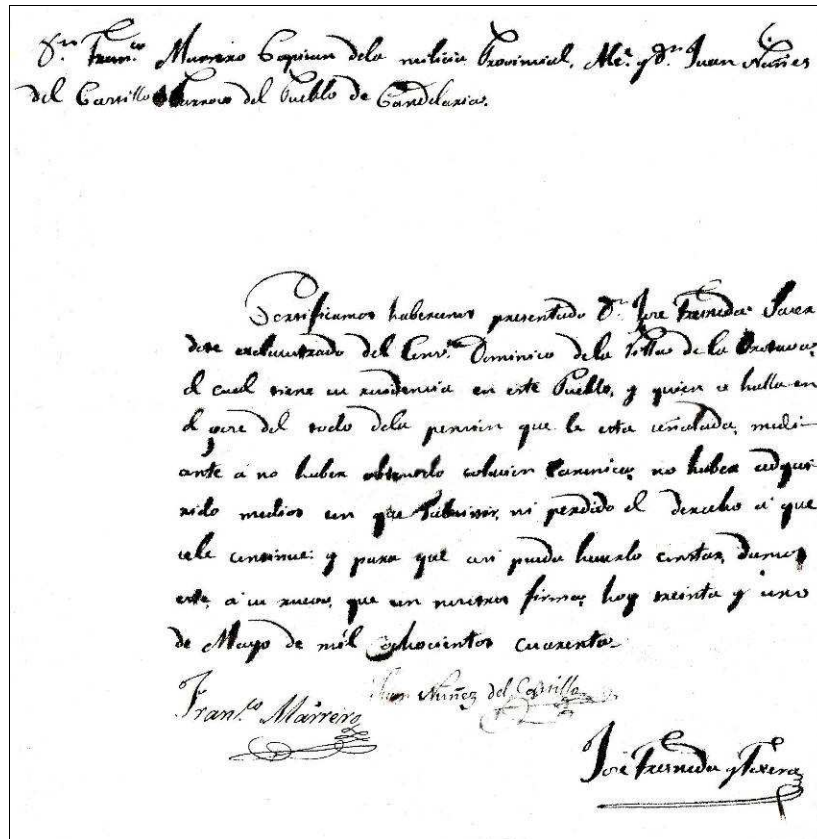 Dn. Franco. Marrero Capitan dela milicia Provincial, Ale. y Dn. Juan Nuñes
del Castillo Parroco del Pueblo de Candelaria.
Certificamos habersenos presentado Dn. Jose Fresneda Sacer
dote exclaustrado del Convto. Dominico dela Villa de la Orotava,
el cual tiene su residencia en este Pueblo, y quien se halla en
el goce del todo dela pension que le esta señalada, medi-
ante á no haber obtenido colacion Canonica, no haber adqui
rido medios con que subsistir, ni perdido el derecho á que
sele continue: y para que asi pueda hacerlo constar, damos
este, á su ruego, que con nuestras firmas, hoy treinta y uno
de Mayo de mil Ochocientos cuarenta.
Franco. Marrero
Juan Nuñez del Castillo
José Fresneda y Texera